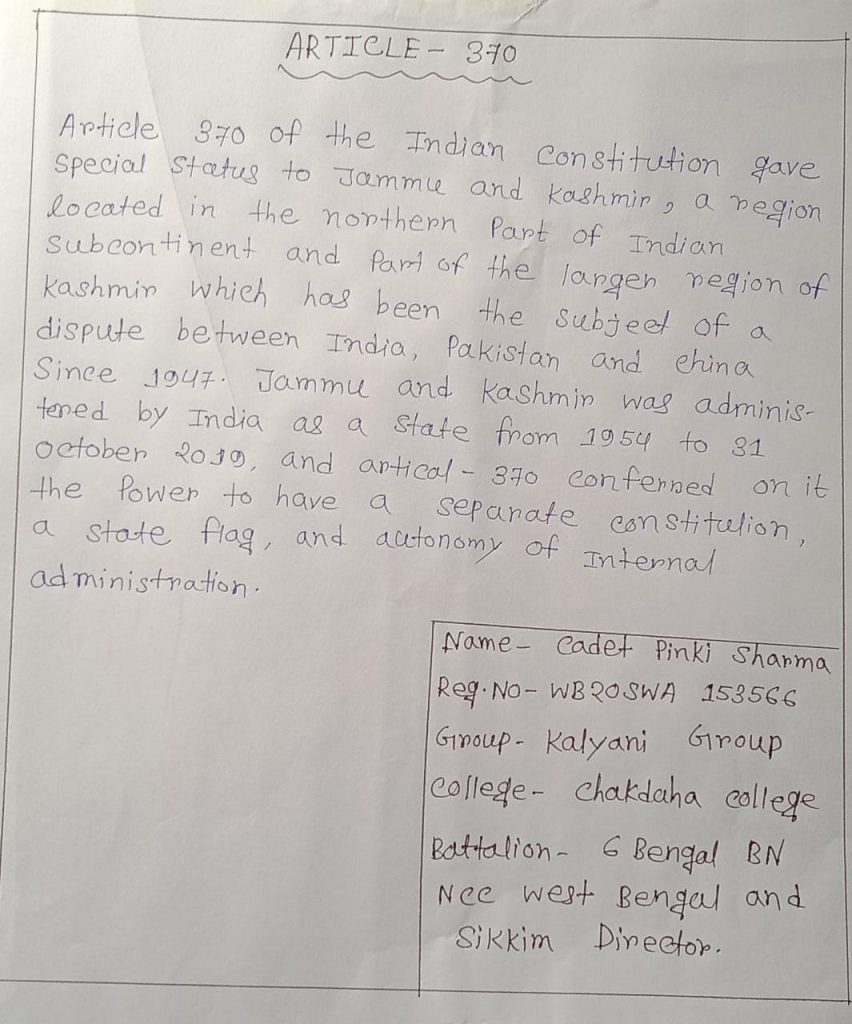 ARTICLE - 370
Article 370 of the Indian Constitution gave
Special Status to Jammu and Kashmir, a region
located in the northern Part of Indian
Subcontinent and Part of the larger region of
Kashmir which has been the subject of a
dispute between India, Pakistan and china
Since 1947. Jammu and Kashmir was adminis-
tered by India as a state from 1954 to 31
october 2019, and artical - 370 conferred on it
the Power to have a separate constitution,
a state flag, and autonomy of Internal
administration.
Name - Cadet Pinki Sharma
Reg. No - WB20SWA 153566
Group - Kalyani Group
College - Chakdaha college
Battalion - 6 Bengal BN
NCC West Bengal and
Sikkim Director.